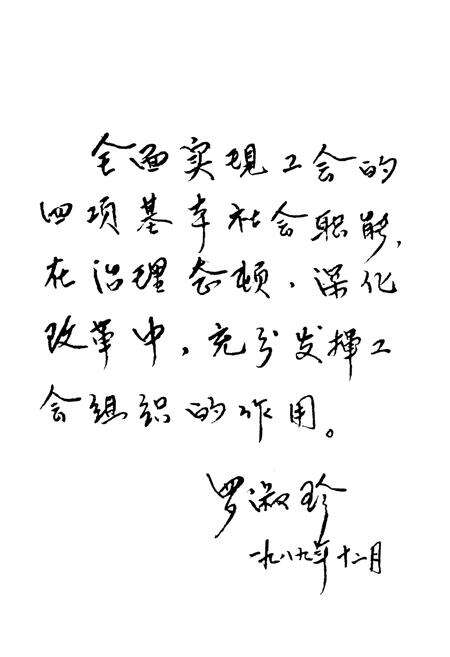 全面实现工会的
四项基本社会职能，
在治理整顿、深化
改革中，充分发挥工
会组织的作用。
罗淑珍
一九八九年十二月